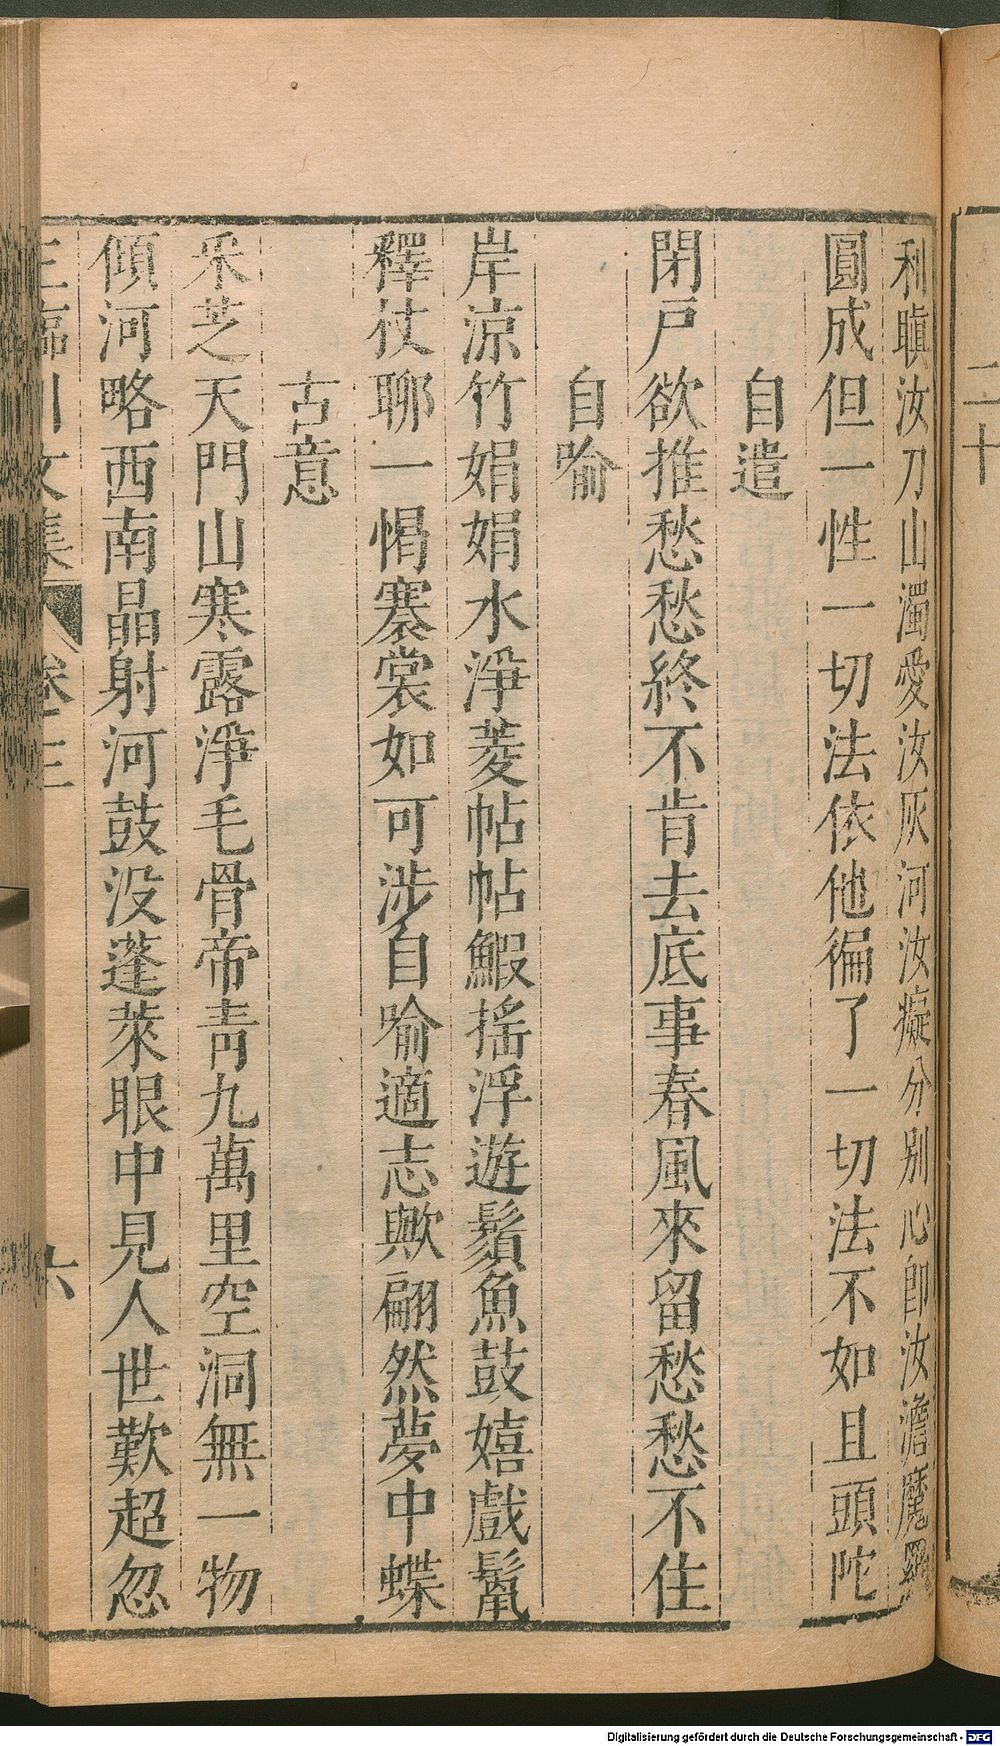 二十
利瞋汝刀山濁愛汝灰河汝癡分別心即汝澹魔羅
圓成但一性一切法依他徧了一切法不如且頭陀
自遣
閉戶欲推愁愁終不肯去底事春風來留愁愁不住
自喻
岸涼竹娟娟水淨菱帖帖鰕搖浮遊鬚魚鼓嬉戲鬣
釋杖聊一愲褰裳如可涉自喻適志歟翩然夢中蝶
古意
采芝天門山寒露淨毛骨帝青九萬里空洞無一物
傾河略西南晶射河鼓没蓬萊眼中見人世歎超忽
王臨川文集 卷三 六
Digitalisierung gefördert durch die Deutsche Forschungsgemeinschaft - DFG